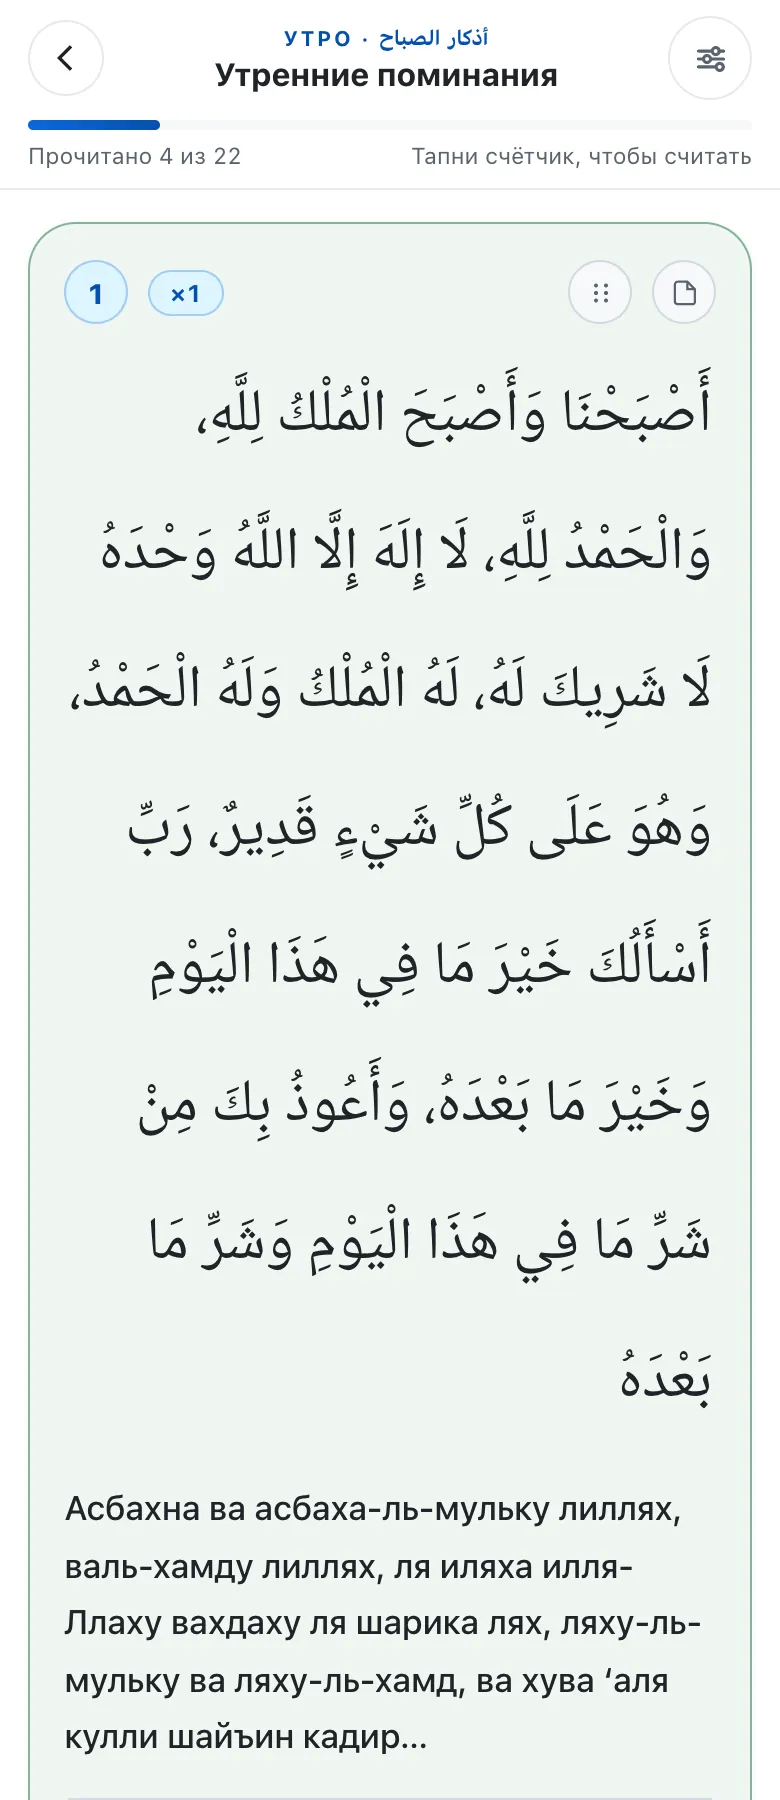 УТРО · أذكار الصباح
Утренние поминания
Прочитано 4 из 22
Тапни счётчик, чтобы считать
1
×1
أَصْبَحْنَا وَأَصْبَحَ الْمُلْكُ لِلَّهِ،
وَالْحَمْدُ لِلَّهِ، لَا إِلَهَ إِلَّا اللَّهُ وَحْدَهُ
لَا شَرِيكَ لَهُ، لَهُ الْمُلْكُ وَلَهُ الْحَمْدُ،
وَهُوَ عَلَى كُلِّ شَيْءٍ قَدِيرٌ، رَبِّ
أَسْأَلُكَ خَيْرَ مَا فِي هَذَا الْيَوْمِ
وَخَيْرَ مَا بَعْدَهُ، وَأَعُوذُ بِكَ مِنْ
شَرِّ مَا فِي هَذَا الْيَوْمِ وَشَرِّ مَا
بَعْدَهُ
Асбахна ва асбаха-ль-мульку лиллях,
валь-хамду лиллях, ля иляха илля-
Ллаху вахдаху ля шарика лях, ляху-ль-
мульку ва ляху-ль-хамд, ва хува ‘аля
кулли шайъин кадир...